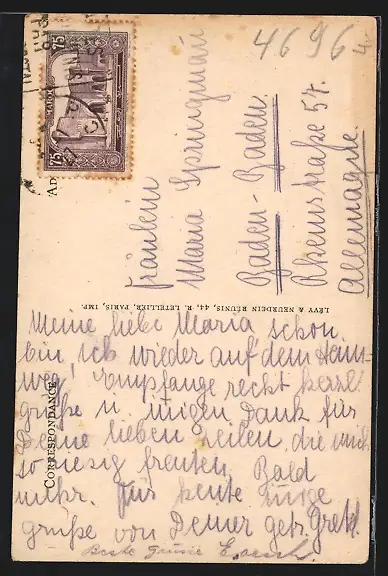 4696
75
MAROC
75
Fräulein
Maria Springmann
Baden-Baden
Rheinstraße 57.
Allemagne.
LÉVY & NEURDEIN RÉUNIS, 44, R. LETELLIER, PARIS, IMP.
CORRESPONDANCE
Meine liebe Maria schon
bin ich wieder auf dem Heim-
weg, Empfange recht herzl
Grüße u. innigen Dank für
Deine lieben Zeilen, die mich
so riesig freuten. Bald
mehr. Für heute innige
Grüße von Deiner getr. Gretl
Beste Grüsse